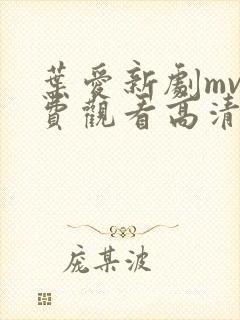 葉愛新劇mv
費觀看高清
庞某波